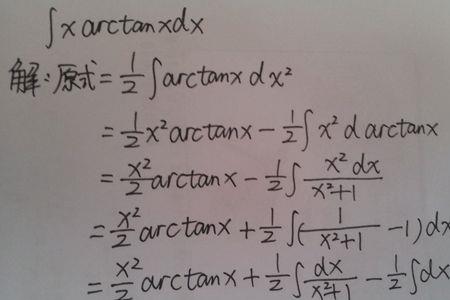 ∫x arctanxdx
解:原式=1/2∫arctanx dx²
=1/2x²arctanx-1/2∫x²d arctanx
=x²/2arctanx-1/2∫x²dx/x²+1
=x²/2arctanx+1/2∫(1/x²+1-1)dx
=x²/2arctanx+1/2∫dx/x²+1-1/2∫dx